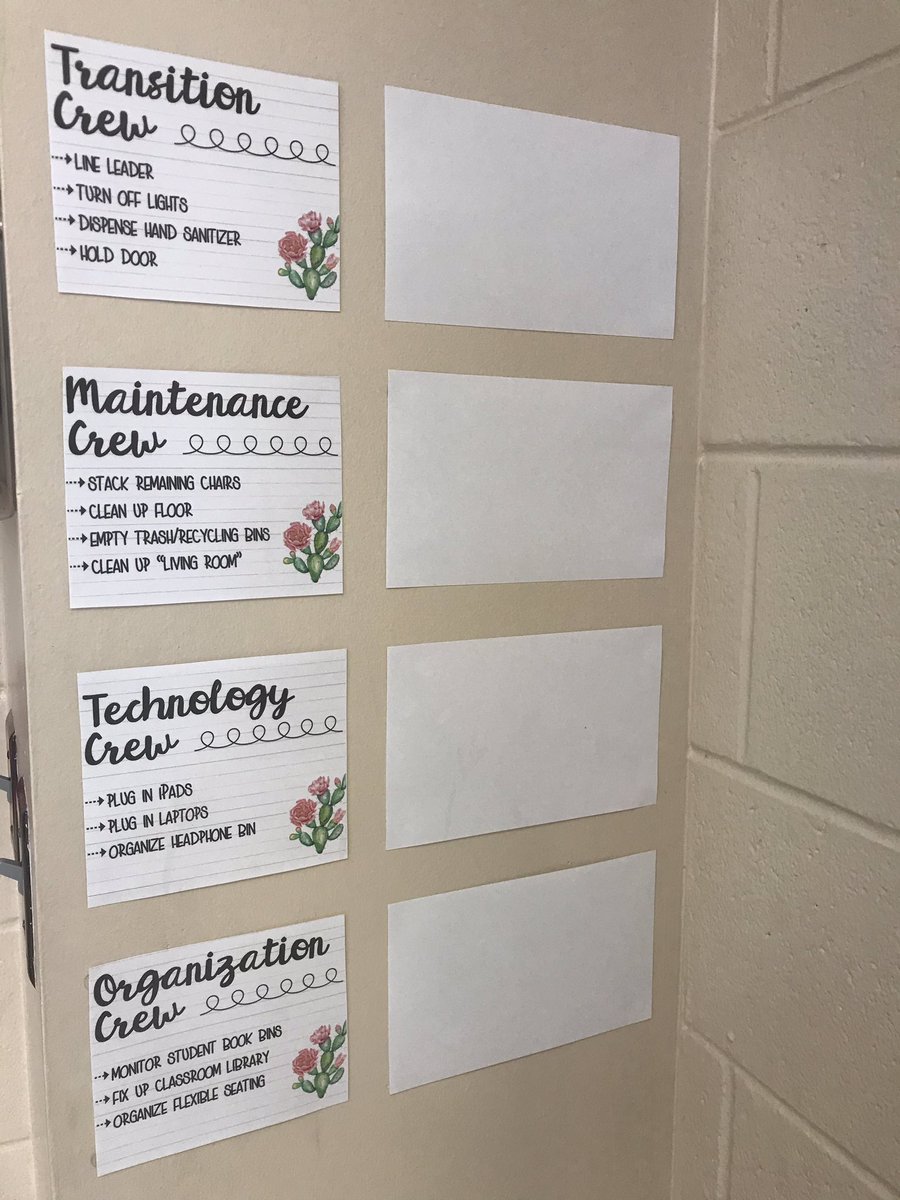 Transition
Crew
LINE LEADER
TURN OFF LIGHTS
DISPENSE HAND SANITIZER
HOLD DOOR
Maintenance
Crew
STACK REMAINING CHAIRS
CLEAN UP FLOOR
EMPTY TRASH/RECYCLING BINS
CLEAN UP "LIVING ROOM"
Technology
Crew
PLUG IN iPADS
PLUG IN LAPTOPS
ORGANIZE HEADPHONE BIN
Organization
Crew
MONITOR STUDENT BOOK BINS
FIX UP CLASSROOM LIBRARY
ORGANIZE FLEXIBLE SEATING